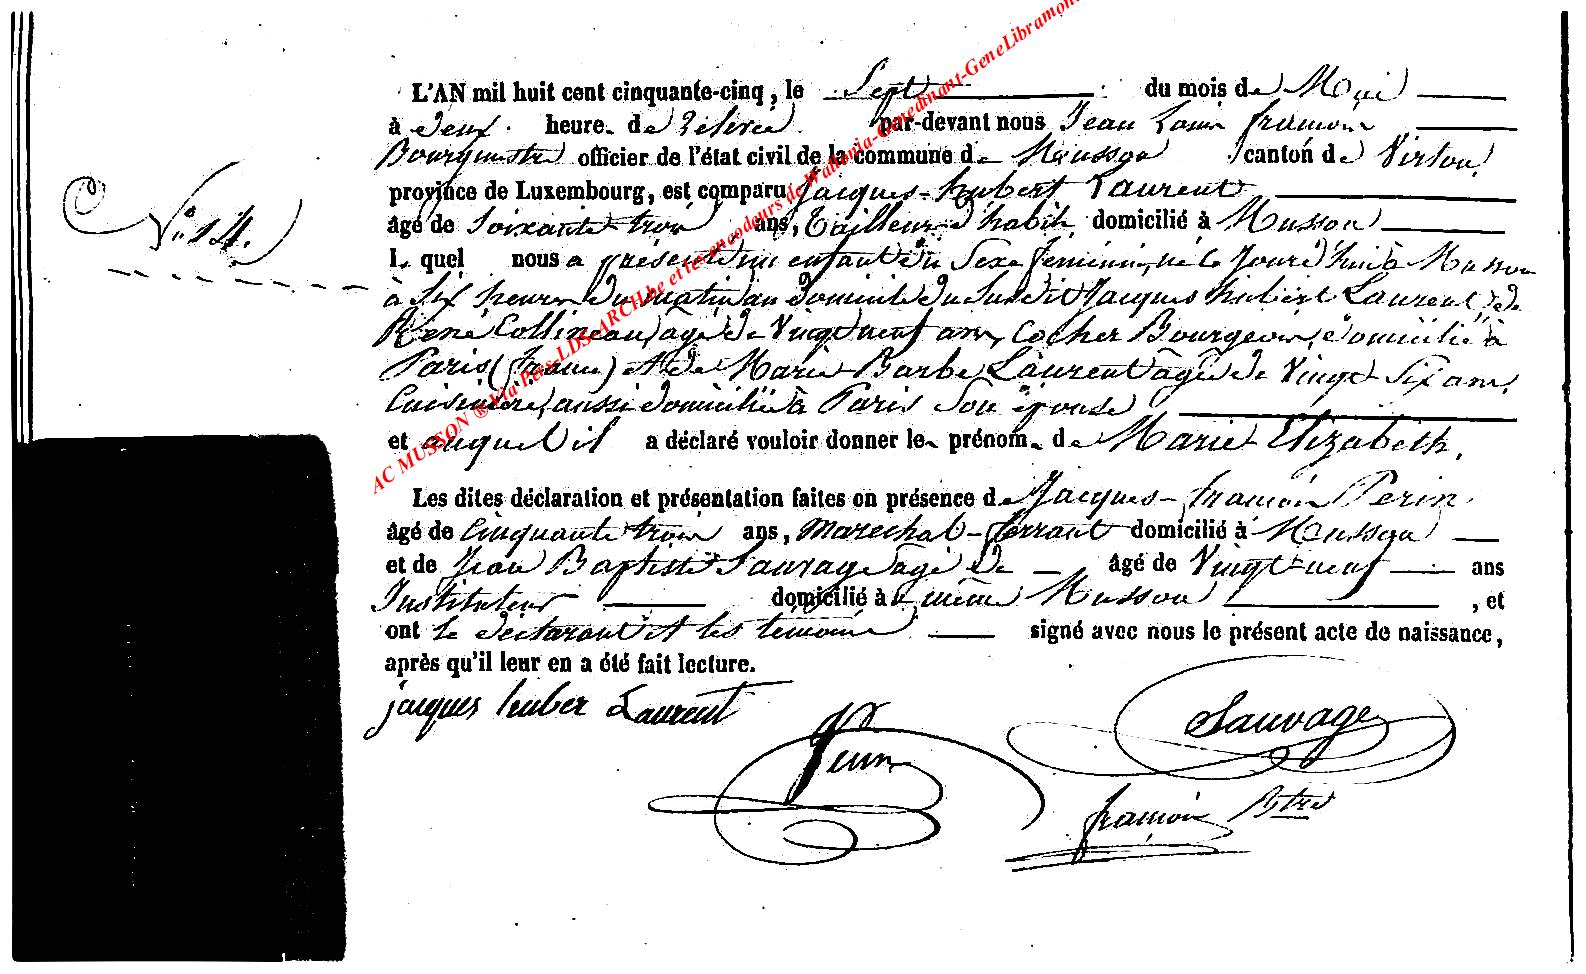 L'AN mil huit cent cinquante-cinq, le Sept du mois de Mai
à deux heure de relevée par-devant nous Jean Louis François
Bourgmestre officier de l'état civil de la commune de Musson canton de Virton,
province de Luxembourg, est comparu Jacques-hubert Laurent
âgé de Soixante trois ans, Tailleur d'habits, domicilié à Musson
N° 14.
lequel nous a présenté un enfant du Sexe feminin, né ce jourd'hui à Musson
à Six heures du matin au domicile du Susdit Jacques hubert Laurent, de
René Collineau, agé de Vingt neuf ans, Cocher Bourgeois, domicilié à
Paris (france) et de Marie Barbe Laurent âgée de Vingt-Six ans,
Cuisinière, aussi domiciliée à Paris Son épouse
et auquel il a déclaré vouloir donner le prénom de Marie Elizabeth.
Les dites déclaration et présentation faites en présence de Jacques-françois Perin
âgé de Cinquante trois ans, Marechal-ferrant domicilié à Musson
et de Jean Baptiste Sauvage agé de âgé de Vingt neuf ans
Instituteur domicilié à même Musson , et
ont le déclarant et les témoins signé avec nous le présent acte de naissance,
après qu'il leur en a été fait lecture.
jacques huber Laurent
Sauvage
Perin
françois Btre
AC MUSSON ® Via Pers-LDS-ARCH.be et les encodeurs de Wallonia-Genedinant-GeneLibramont